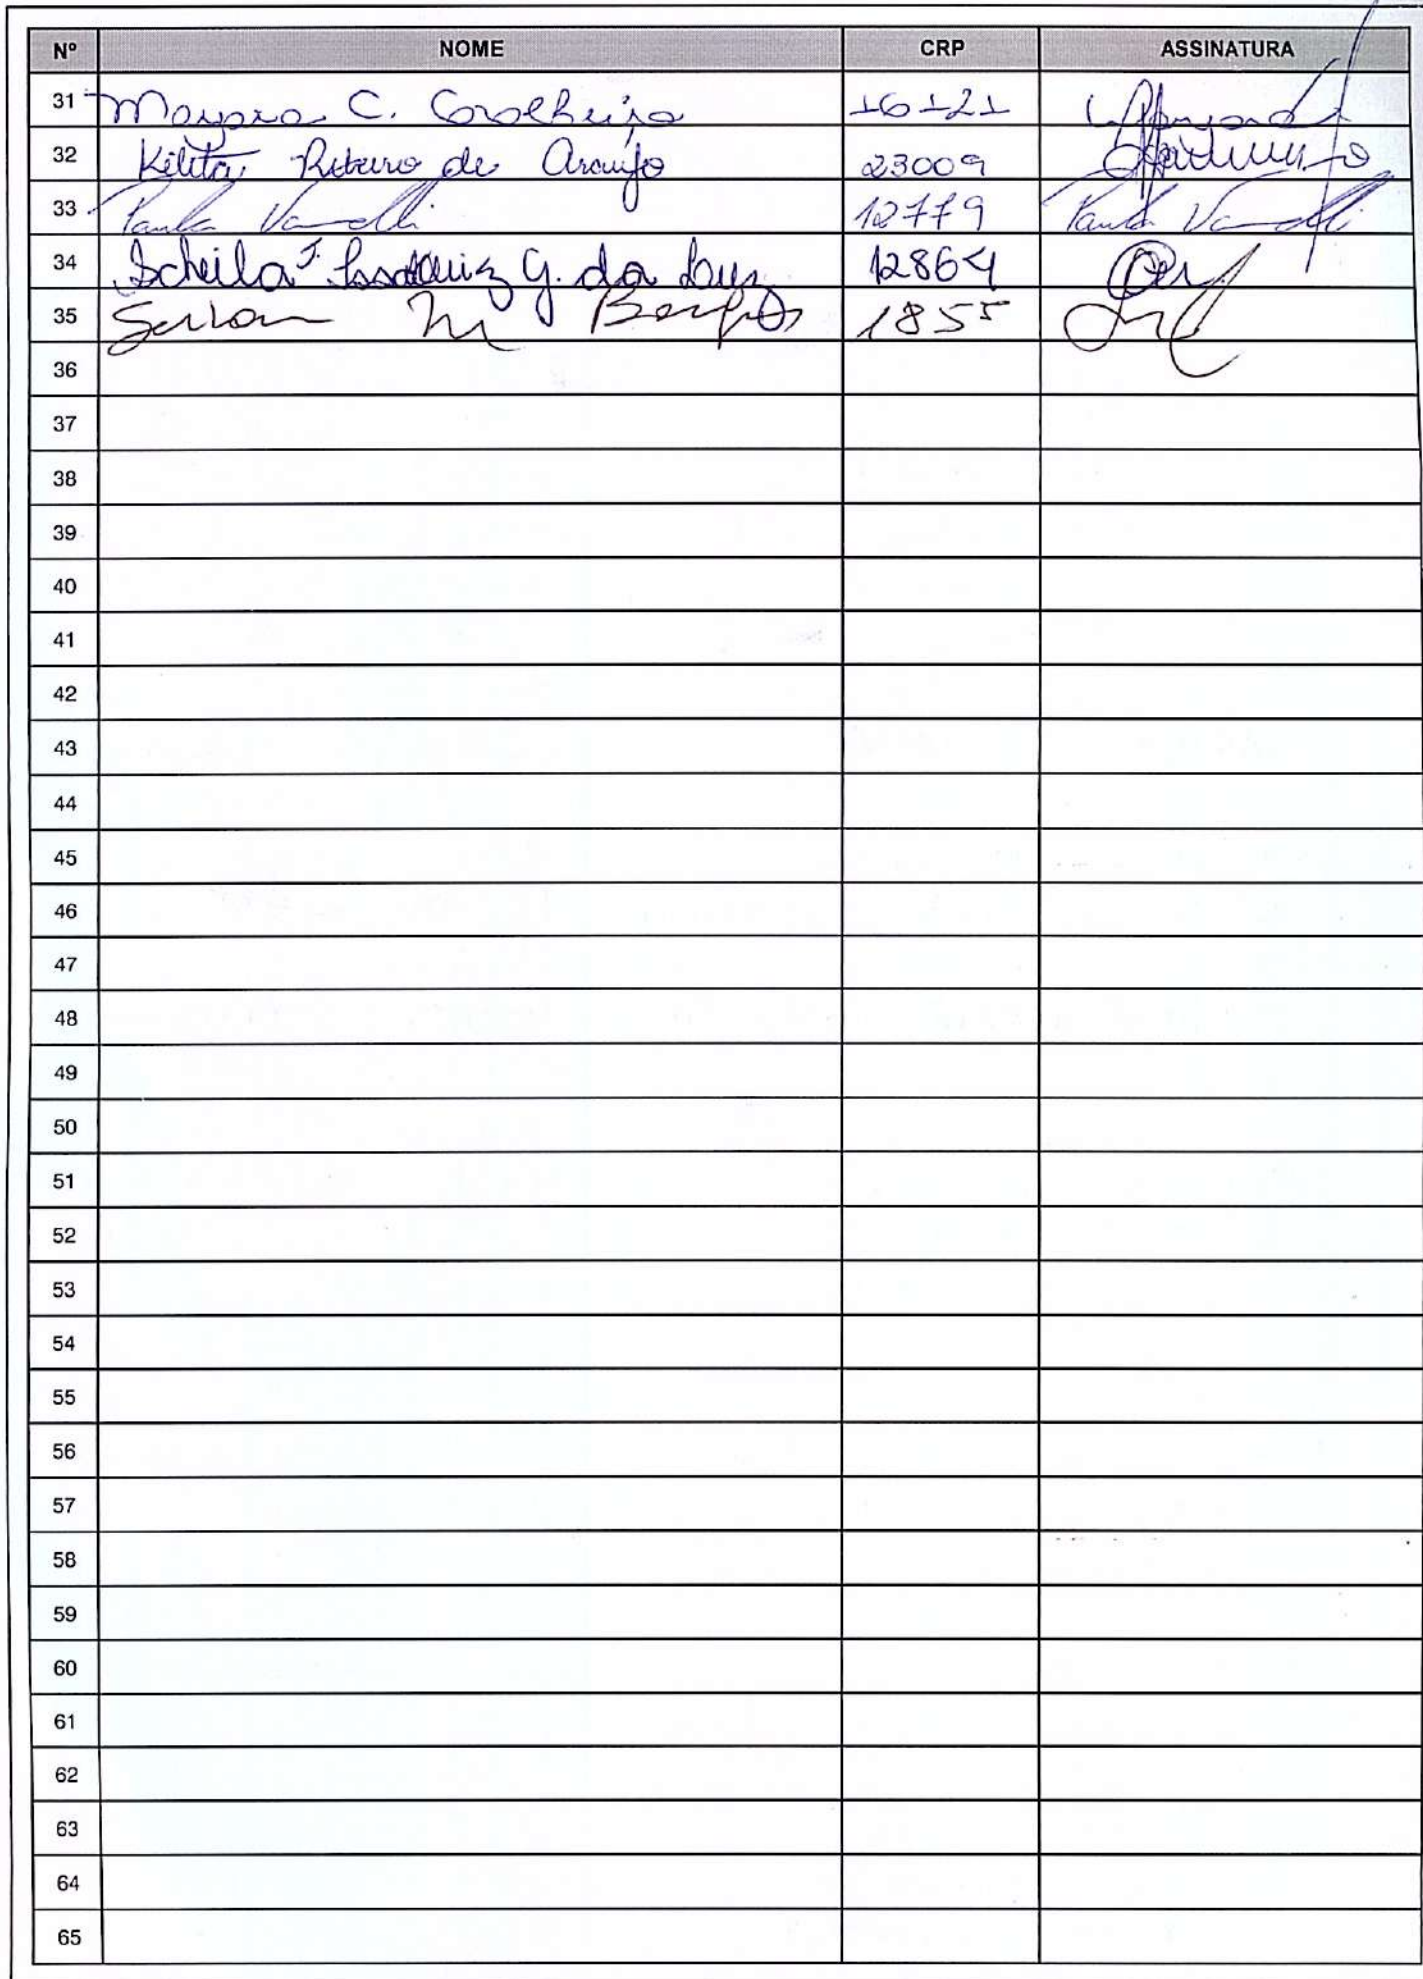 Nº NOME CRP ASSINATURA
31 Mayara C. Coelheiro 16121
32 Kelita Ribeiro de Araujo 23009
33 Paula Vanelli 12779 Paula Vanelli
34 Scheila G. da Luz 12864
35 M 1855
36
37
38
39
40
41
42
43
44
45
46
47
48
49
50
51
52
53
54
55
56
57
58
59
60
61
62
63
64
65